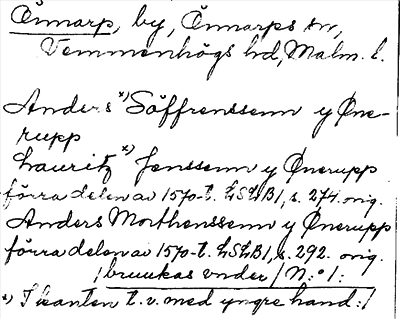 Önnarp, by, Önnarps sn,
Vemmenhögs hd, Malm. l.
Anders x) Söffrenssenn y Øne-
rupp
Lauritz x) Jenssenn y Ønerupp
förra delen av 1570-t. LSLB1, s. 274. orig.
Anders Morthenssenn y Ønerupp
förra delen av 1570-t. LSLB1, s. 292. orig.
/bruukas vnder / N: o /:
x) I kanten t. v. med yngre hand:/